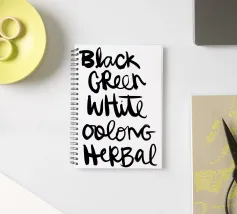 Black
GREEN
WHITE
OOLONG
HERBAL